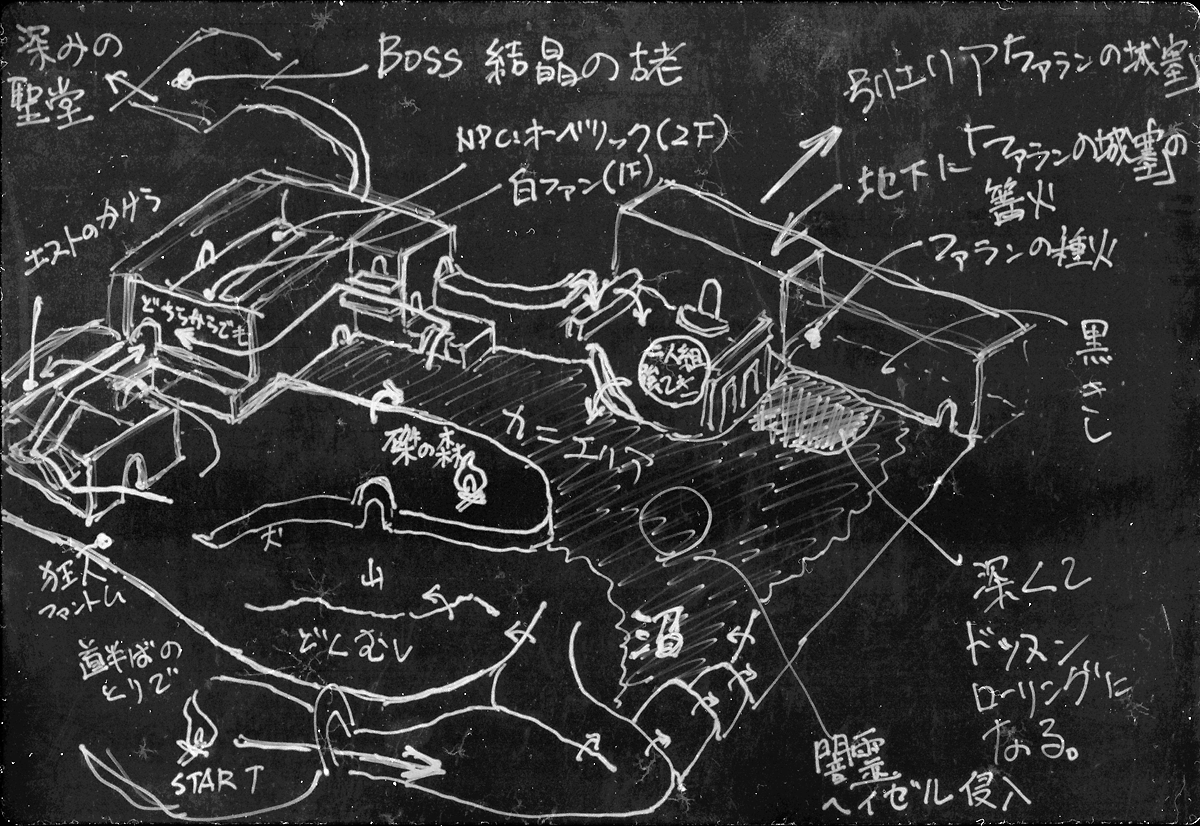 深みの
聖堂
BOSS 結晶の古老
別エリア「ファランの城塞」
NPC:オーベリック(2F)
白ファン(1F)
地下に「ファランの城塞の」
篝火
エストのかけら
ファランの種火
どちらからでも
黒きし
二人組
強てき
カニエリア
磔の森
犬
山
狂人
ファントム
どくむし
沼
深くて
ドッスン
ローリングに
なる。
道半ばの
とりで
START
闇霊
ヘイゼル侵入